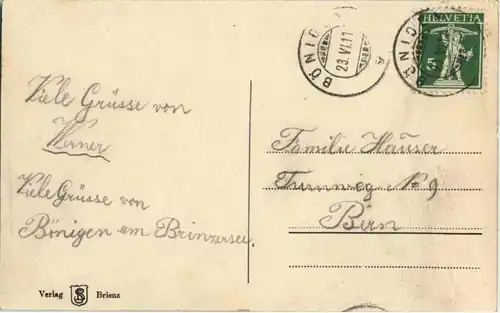 Viele Grüsse von
Werner
Viele Grüsse von
Bönigen am Brinzersee.
BÖNIG
23.VI.11
BÖNIG
HELVETIA
5
Familie Hauser
No 9
Bern
Verlag
Brienz